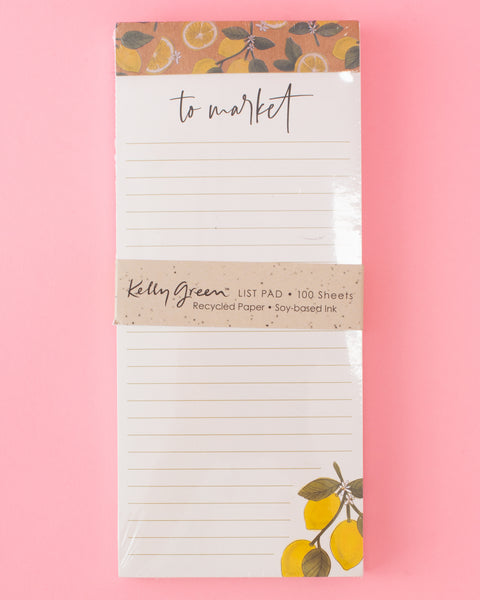 to market
Kelly Green™ LIST PAD • 100 Sheets
Recycled Paper • Soy-based Ink